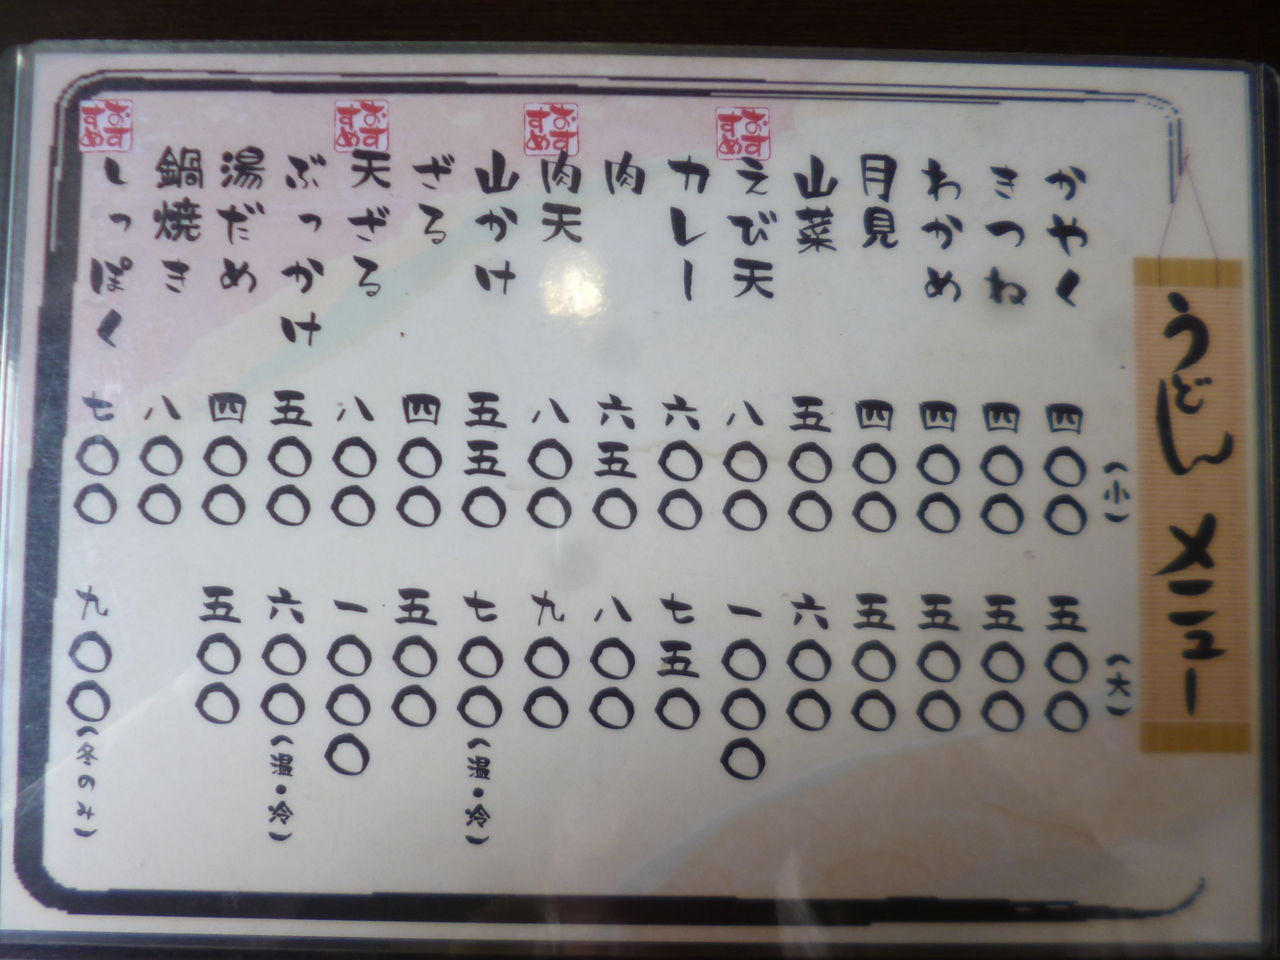 うどん メニュー
(小) (大)
かやく 四〇〇 五〇〇
きつね 四〇〇 五〇〇
わかめ 四〇〇 五〇〇
月見 四〇〇 五〇〇
山菜 五〇〇 六〇〇
おすすめ えび天 八〇〇 一〇〇〇
カレー 六〇〇 七五〇
肉 六五〇 八〇〇
おすすめ 肉天 八〇〇 九〇〇
山かけ 五五〇 七〇〇 (温・冷)
ざる 四〇〇 五〇〇
おすすめ 天ざる 八〇〇 一〇〇〇
ぶっかけ 五〇〇 六〇〇 (温・冷)
湯だめ 四〇〇 五〇〇
鍋焼き 八〇〇
おすすめ しっぽく 七〇〇 九〇〇 (冬のみ)